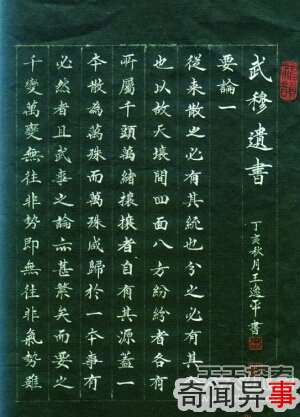 武穆遺書
丁亥秋月王逸平書
要論一
從來散之必有其統也分之必有其
也以故天壤間四面八方紛紛者各有
所屬千頭萬緒攘攘者自有其源蓋一
本散為萬殊而萬殊咸歸於一本事有
必然者且武事之論亦甚繁矣而要之
千變萬變無往非勢即無往非氣勢雖
奇闻异事